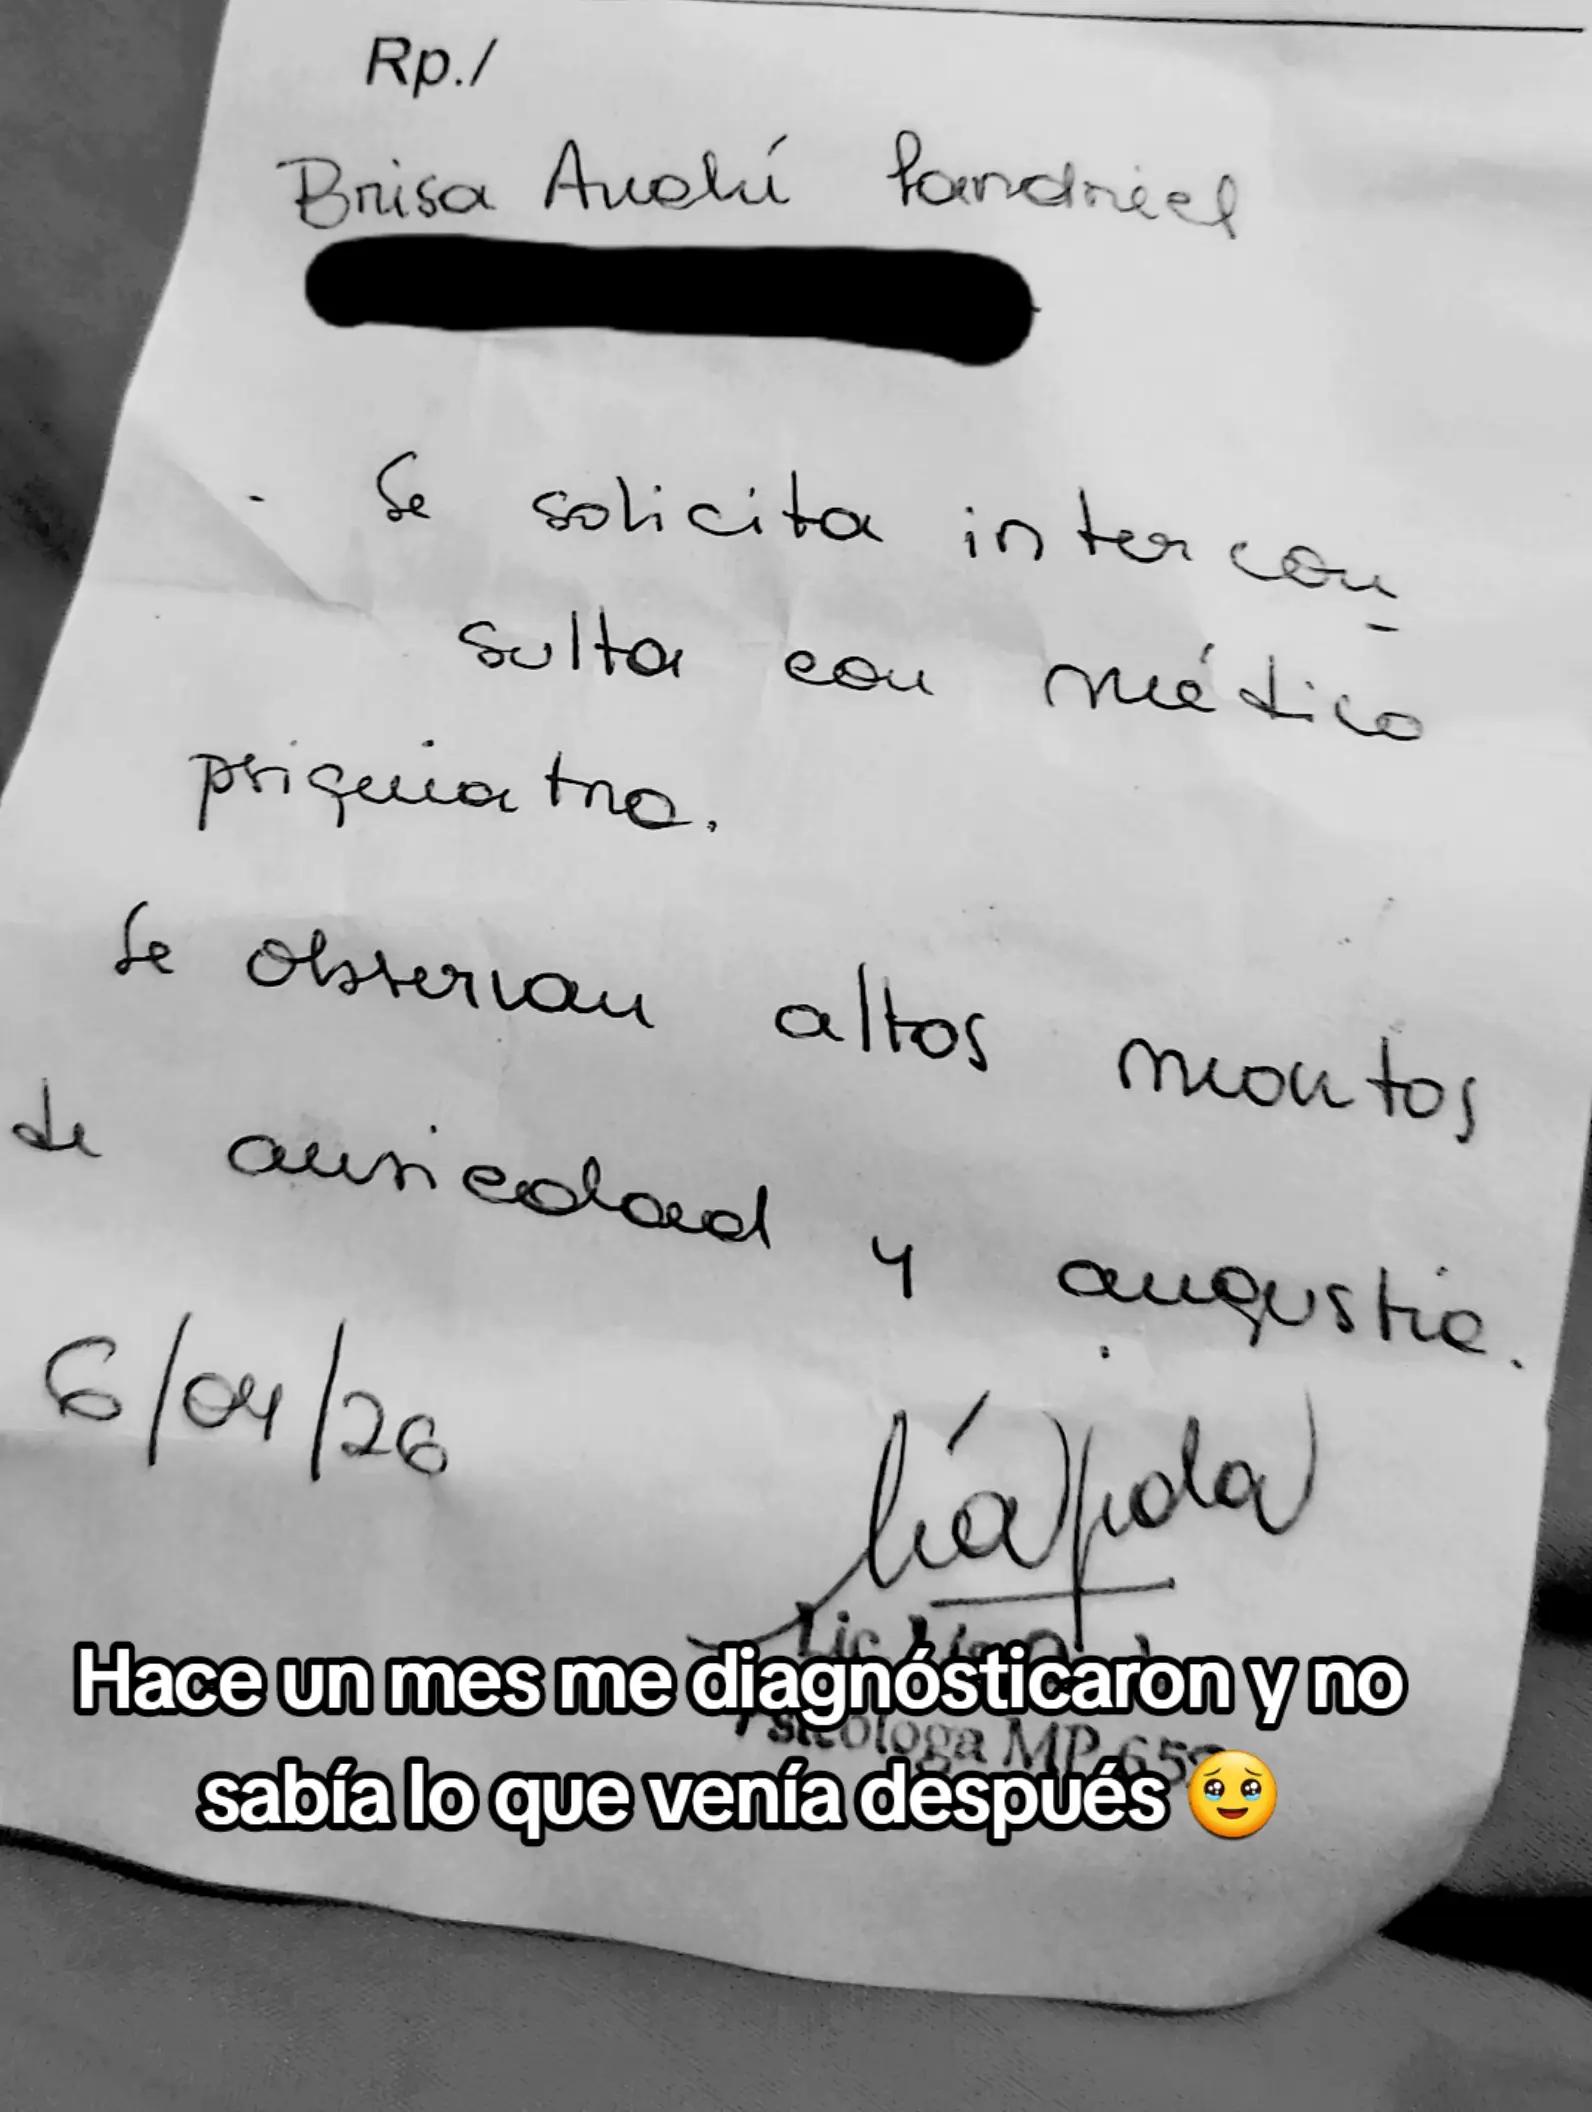 Rp./
Brisa Anahí Pandriel
- Se solicita intercon-
sulta con médico
psiquiatra.
Se observan altos montos
de ansiedad y angustia.
6/04/26
Lic
Psicóloga MP 65
Hace un mes me diagnósticaron y no
sabía lo que venía después 🥹